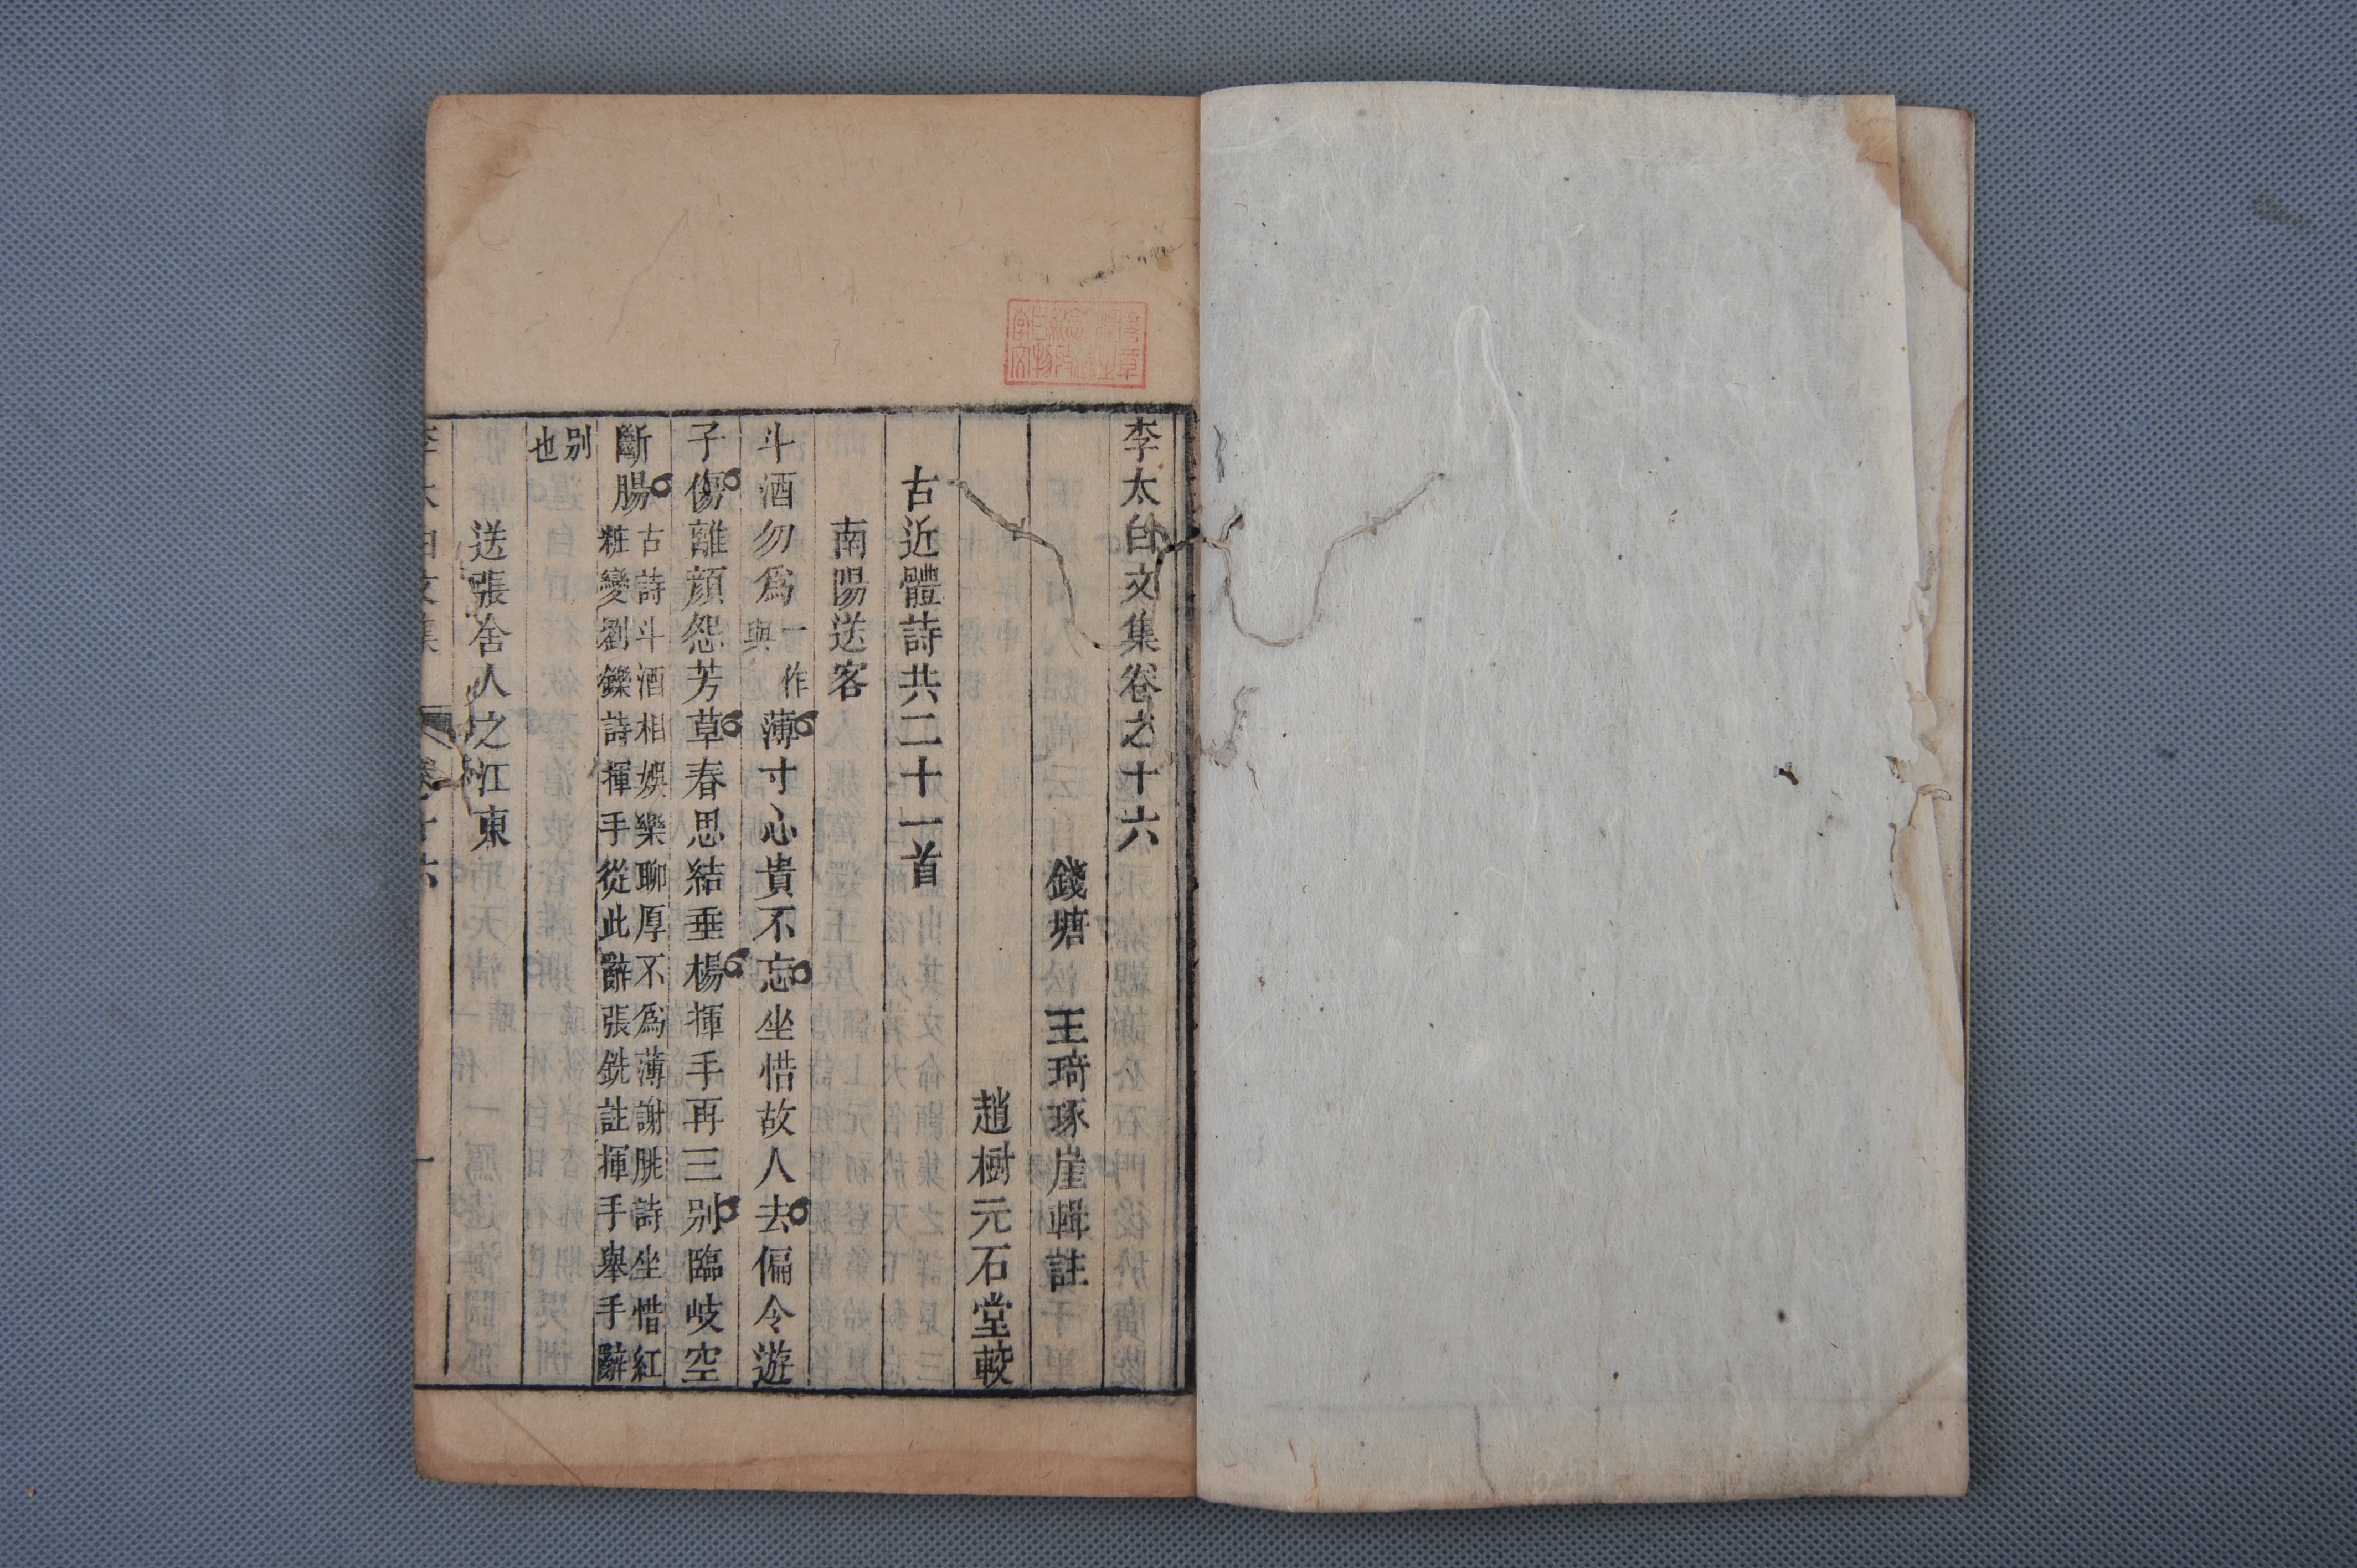 李太白文集卷之十六
錢塘 王琦琢崖輯註
趙樹元石堂較
古近體詩共二十一首
南陽送客
斗酒勿爲一作與薄寸心貴不忘坐惜故人去偏令遊
子傷離顏怨芳草春思結垂楊揮手再三別臨岐空
斷腸古詩斗酒相娛樂聊厚不爲薄謝朓詩坐惜紅
粧變劉鑠詩揮手從此辭張銑註揮手舉手辭
別也
送張舍人之江東